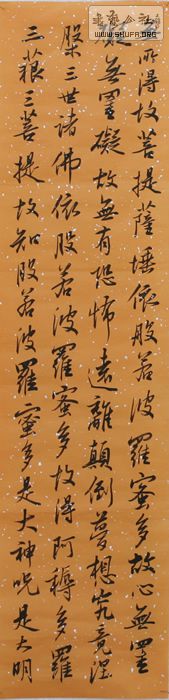 所得故菩提薩埵依般若波羅蜜多故心無罣
礙無罣礙故無有恐怖遠離顛倒夢想究竟涅
槃三世諸佛依般若波羅蜜多故得阿耨多羅
三藐三菩提故知般若波羅蜜多是大神呪是大明
WWW.SHUFA.ORG